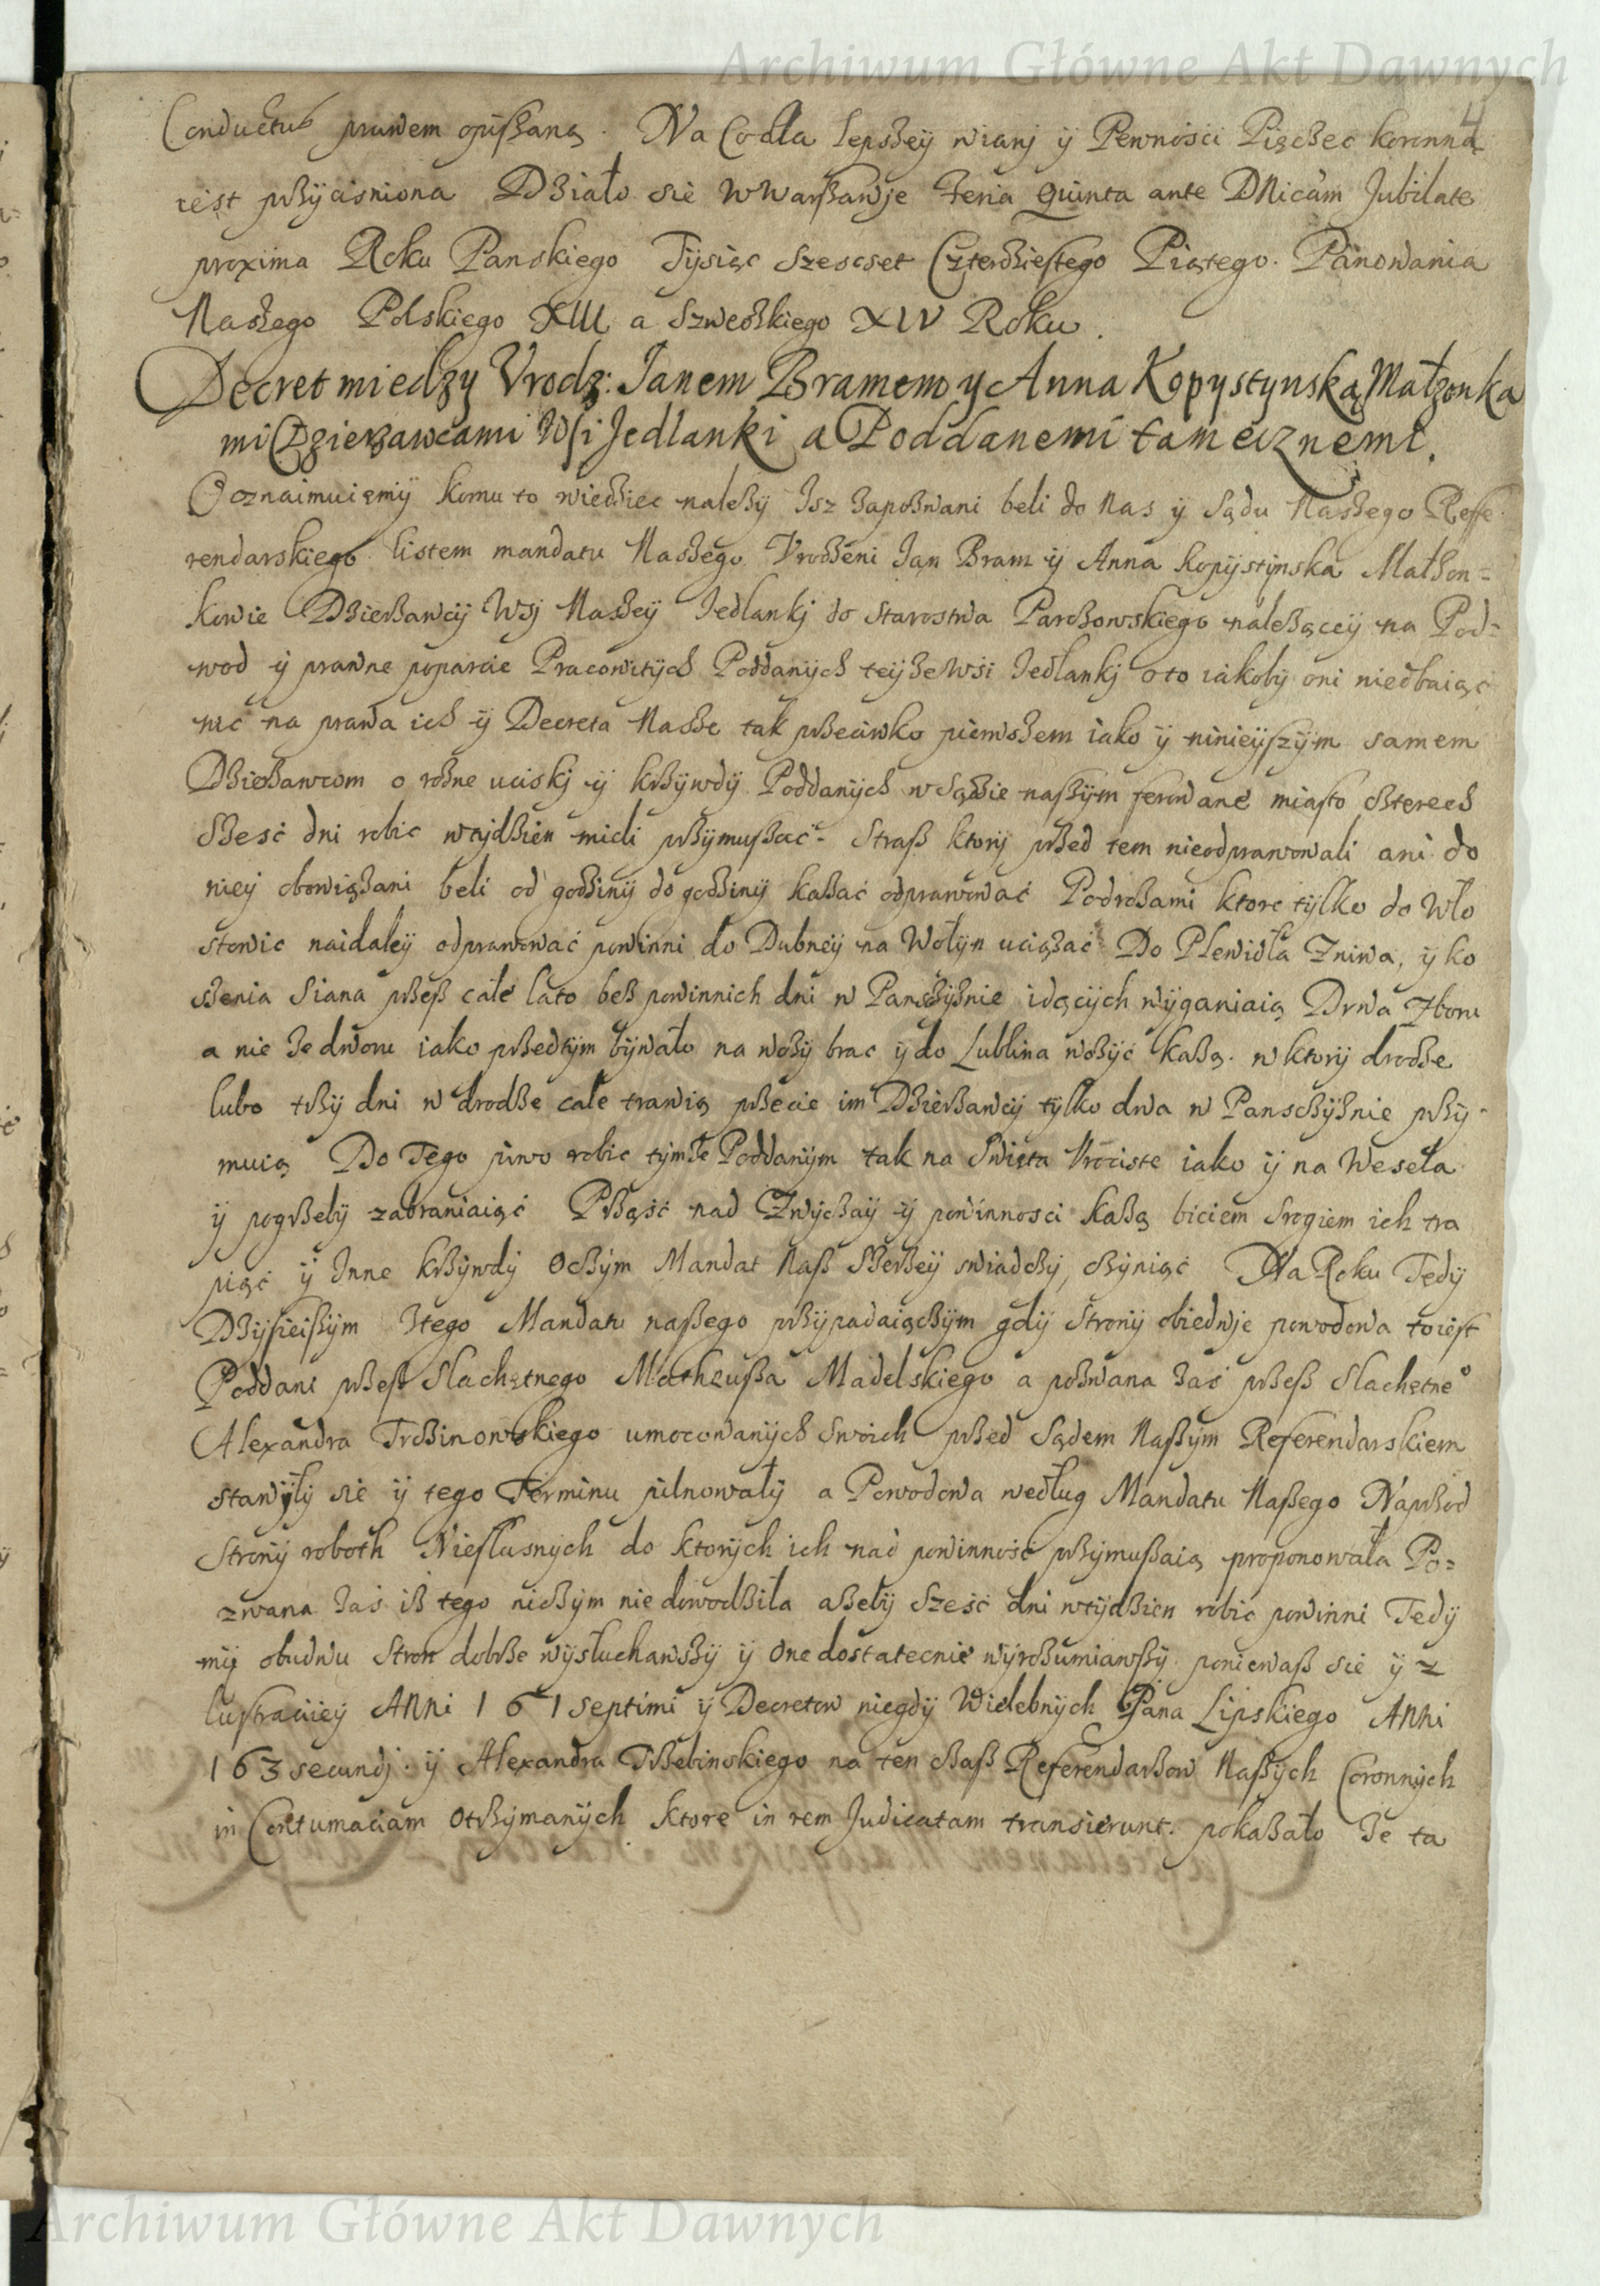 Archiwum Główne Akt Dawnych
4
Conductus prawem opisaną. Na Co dla lepszey wiary ÿ Pewnosci Pięczec koronna
iest przÿcisniona Działo się w Warszawie Feria Quinta ante DNicam Jubilate
proxima Roku Panskiego Tÿsiąc Szescset Czterdziestego Piątego. Panowania
Naszego Polskiego XIII a Szwedzkiego XIV Roku.
Decret miedzy Vrodz: Janem Bramem y Anna Kopystynską Małzonka
mi Dzierzawcami Wsi Jedlanki a Poddanemi tameicznemi.
Oznaimuięmÿ komu to wiedziec nalezÿ Isz zapozwani beli do Nas ÿ Sądu Naszego Reffe
rendarskiego listem mandatu Naszego Vrodzeni Jan Bram ÿ Anna Kopÿstÿnska Małzon=
kowie Dzierzawcÿ Wsj Naszeÿ Jedlankj do Starostwa Parczowskiego nalezącej na Pod=
wod ÿ prawne poparcie Pracowitÿch Poddanÿch teÿze wsi Jedlankj o to iakobÿ oni niedbaiąc
nic na prawa ich ÿ Decreta Nasze tak przeciwko pierwszem iako ÿ ninieÿszÿm samem
Dzierzawcom o rozne uciskj ÿ krzÿwdÿ Poddanÿch w Sądzie naszÿm ferowane miasto czterech
Szesć dni robic w tÿdzien mieli przÿmuszać. Straz ktorÿ przed tem nieodprawowali ani do
nieÿ obowiązani beli od godzinÿ do godzinÿ kazać odprawować Podrozami ktore tÿlko do Wło
stowic naidaleÿ odprawować powinni do Dubneÿ na Wołÿn uciązać Do Plewidła Zniwa, ÿ ko
szenia Siana przesz całe lato bez powinnich dni w Panszczÿznie idącÿch wÿganiaią Drwa z boru
a nie ze dworu iako przedtÿm bÿwało na wozÿ brac ÿ do Lublina wozÿć każą. w ktorÿ drodze
lubo trzÿ dni w drodze całe trawią przecie im Dzierzawcÿ tÿlko dwa w Panszczÿznie przÿ=
muią Do Tego piwo robic tÿmze Poddanÿm tak na Swięta Vrociste iako ÿ na Wesela
ÿ pogrzebÿ zabraniaiąć Prząść nad Zwÿczaÿ ÿ powinnosci każą biciem Srogiem ich tra
piąć ÿ Inne krzÿwdÿ O czÿm Mandat Nasz Szerzeÿ swiadczÿ, czÿniąć Na Roku Tedÿ
Dzisieiszÿm z tego Mandatu naszego przÿpadaiączÿm gdÿ Stronÿ obiedwje powodowa to iest
Poddani przesz Slachetnego Matheusza Madelskiego a pozwana zaś przesz Slachetne°
Alexandra Trzinowskiego umocowanÿch Swoich przed Sądem Naszÿm Referendarskiem
stawiłÿ sie ÿ tego Terminu pilnowałÿ a Powodowa według Mandatu Naszego Naprzod
Stronÿ roboth Niesłusnÿch do ktorÿch ich nad powinność przÿmuszaią proponowała Po=
zwana zaś iż tego niczÿm nie dowodziła azebÿ Szesć dni w tÿdzien robic powinni Tedÿ
mÿ obudwu Stron dobrze wÿsłuchawszÿ ÿ One dostatecnie wÿrozumiawszÿ poniewasz sie ÿ z
lustraciieÿ ANni 161 septimi ÿ Decretow niegdÿ Wielebnÿch Pana Lipskiego ANni
163 secundj. ÿ Alexandra Trzebinskiego na ten czasz Referendarzow Naszÿch Coronnÿch
in Contumaciam otrzÿmanÿch ktore in rem Judicatam transierunt. pokazało ze ta
Archiwum Główne Akt Dawnych